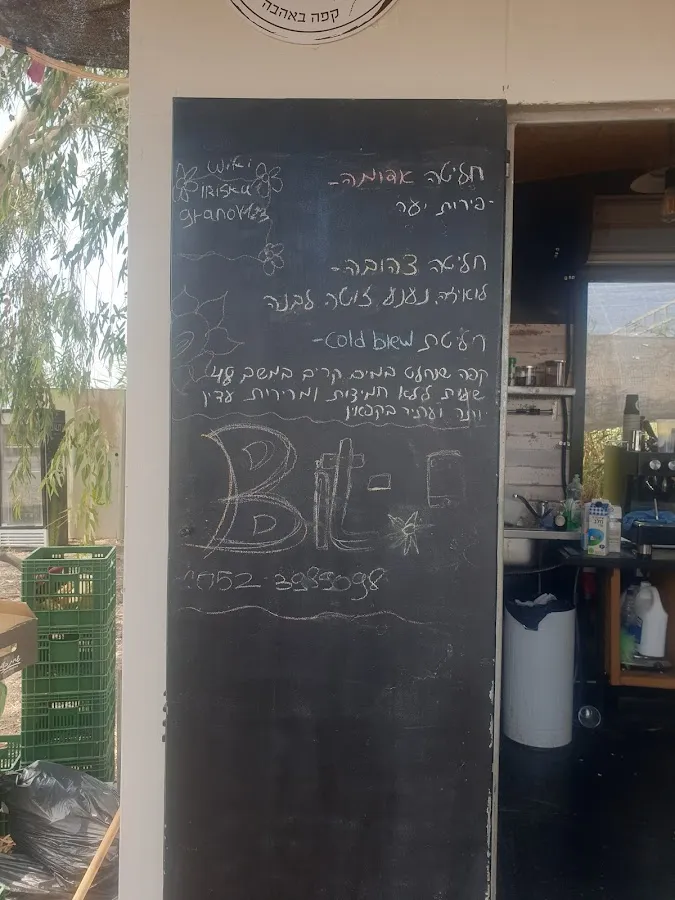 קפה באהבה
wiki
IRISKA
granov
חליטה אדומה-
-פירות יער
חליטה צהובה-
לואיזה, נענע, זוטה לבנה
חליטת cold brew-
קפה שנחלט במים קרים במשך 48
שעות ללא חמיצות ומרירות עדין
יותר ועתיר בקפאין
Bit-
052-3989098